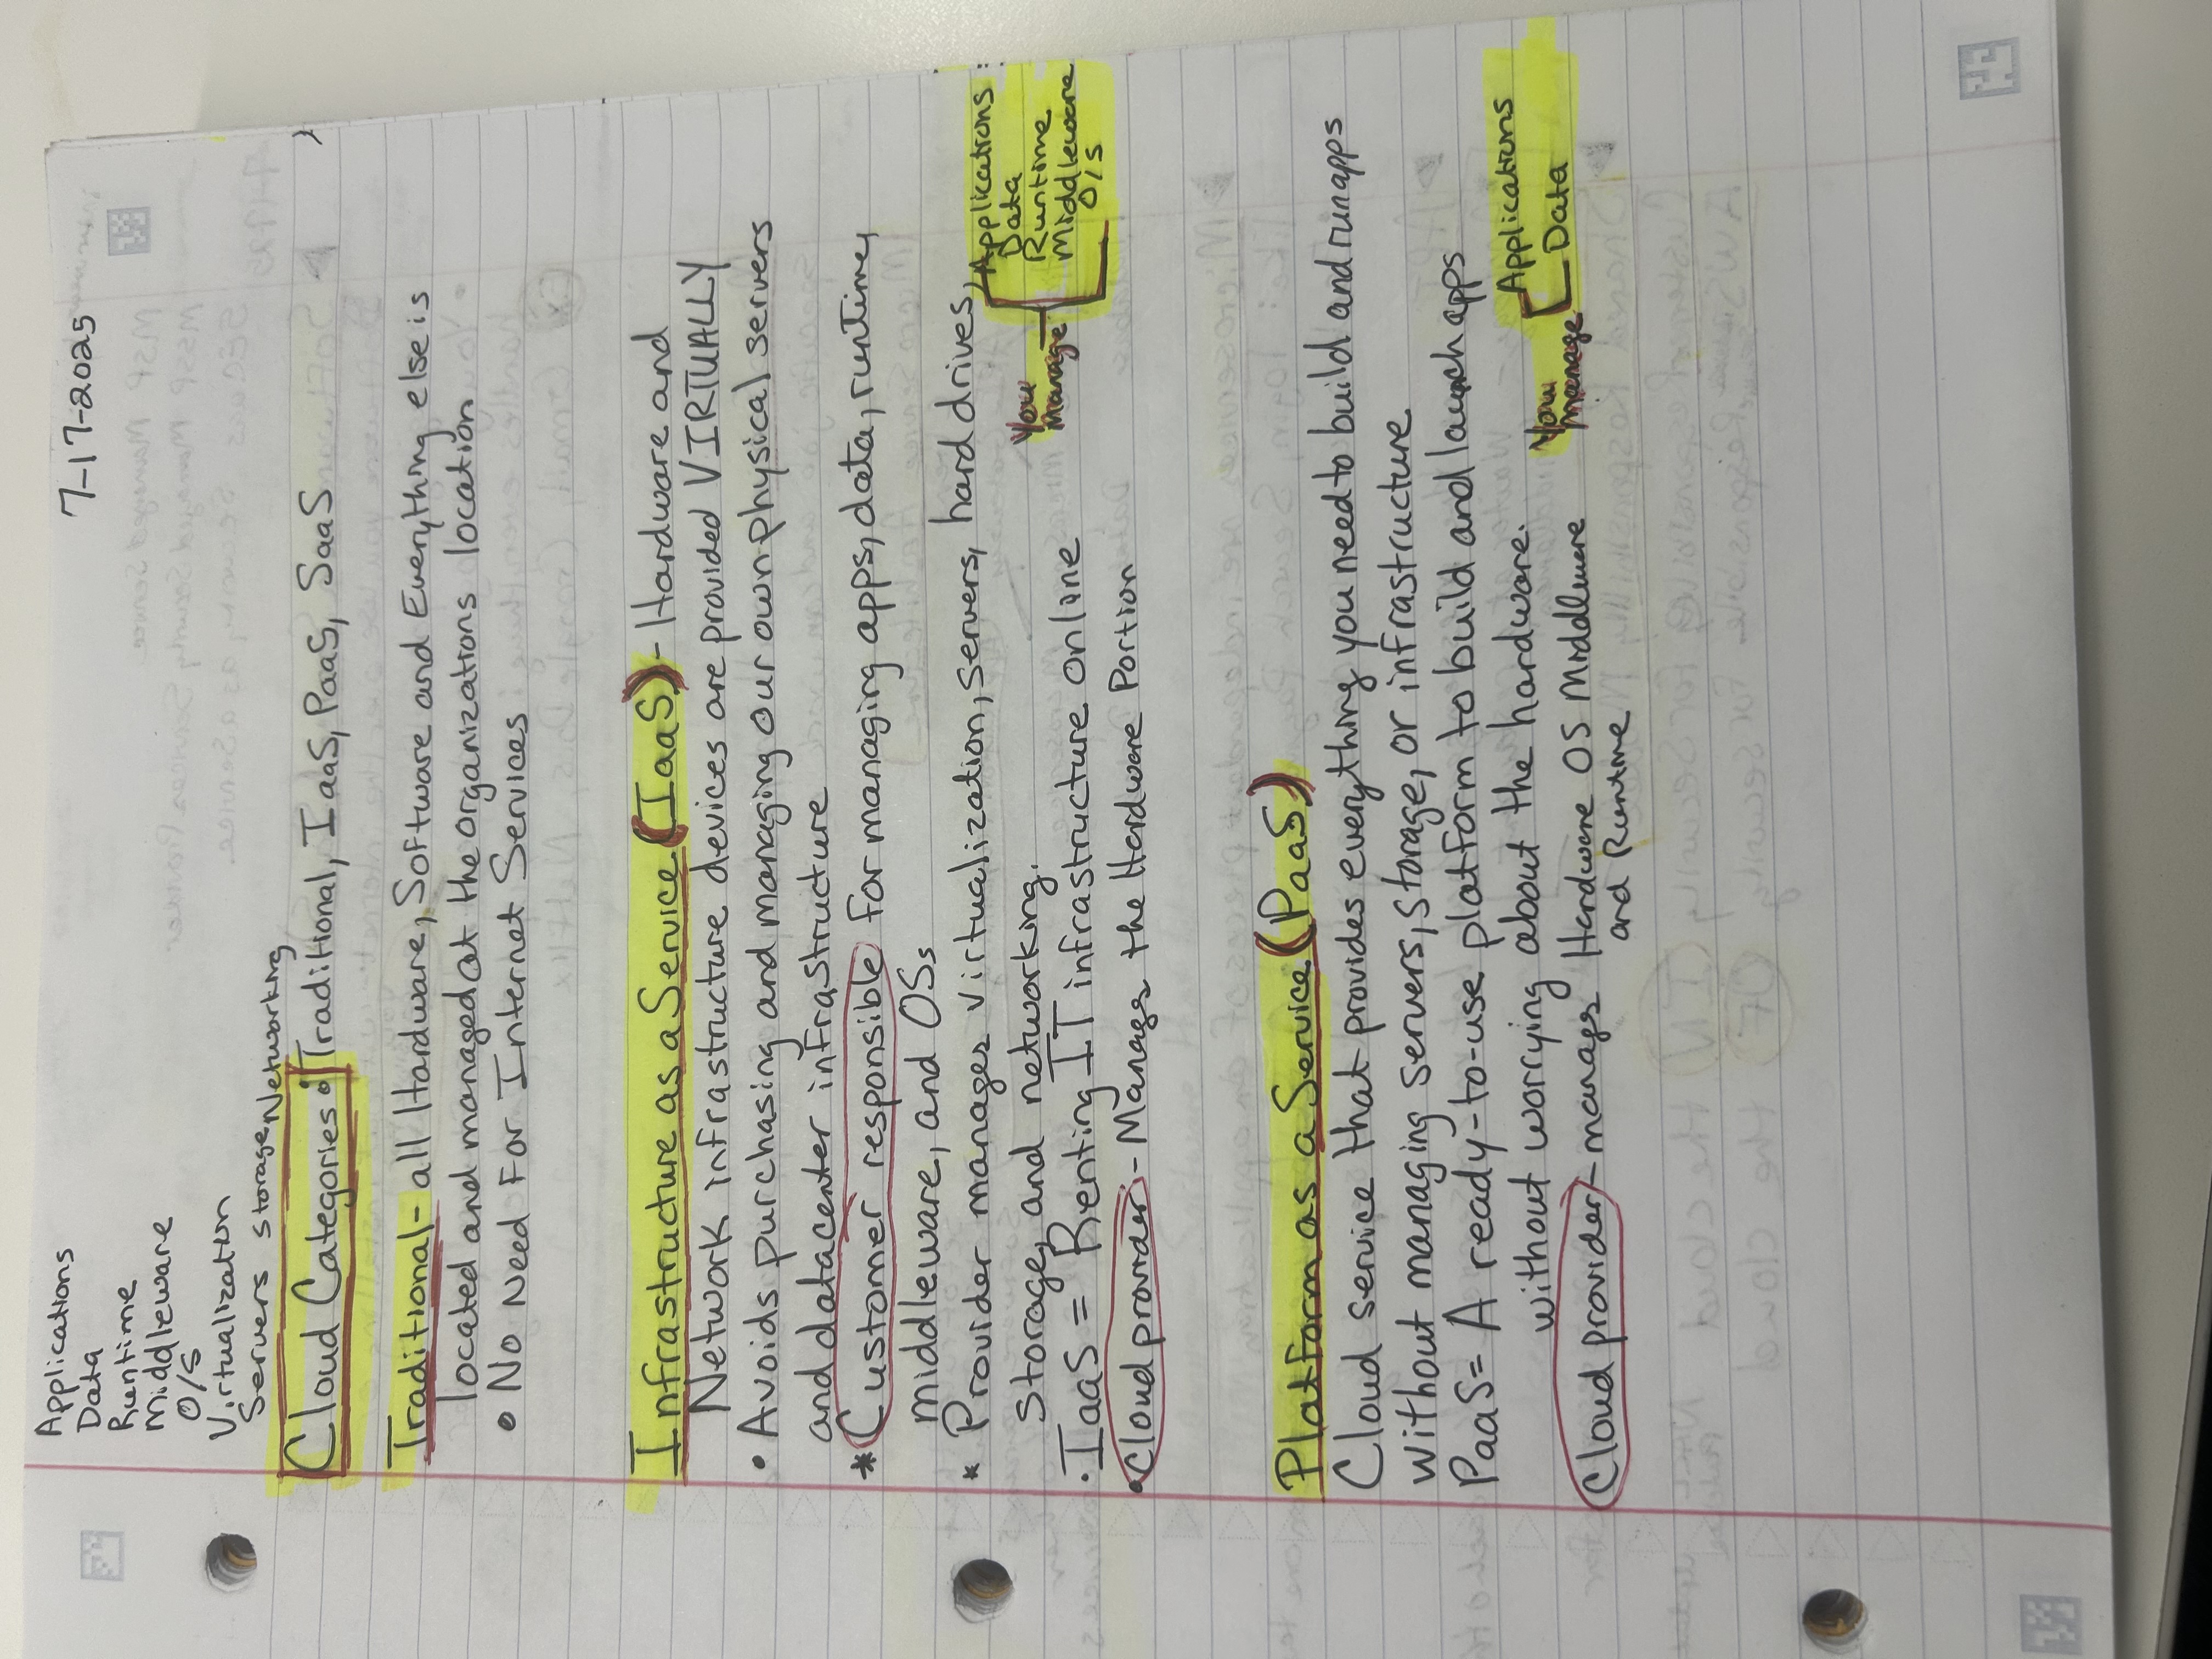 7-17-2025
Applications
Data
Runtime
Middleware
O/S
Virtualization
Servers Storage, Networking
Cloud Categories: Traditional, IaaS, PaaS, SaaS
Traditional- all Hardware, Software and Everything else is
located and managed at the organizations location
• No Need For Internet Services
Infrastructure as a Service (IaaS) - Hardware and
Network infrastructure devices are provided VIRTUALLY
• Avoids purchasing and managing our own physical servers
and datacenter infrastructure
* Customer responsible for managing apps, data, runtime,
middleware, and OSs
* Provider manages virtualization, servers, hard drives,
Storage, and networking.
• IaaS = Renting IT infrastructure online
• Cloud provider - Manages the Hardware Portion
You
Manage
Applications
Data
Runtime
Middleware
O/S
Platform as a Service (PaaS)
Cloud service that provides everything you need to build and run apps
without managing servers, storage, or infrastructure
PaaS= A ready-to-use platform to build and launch apps
without worrying about the hardware.
Cloud provider - manages Hardware OS Middleware
and Runtime
You
manage
Applications
Data